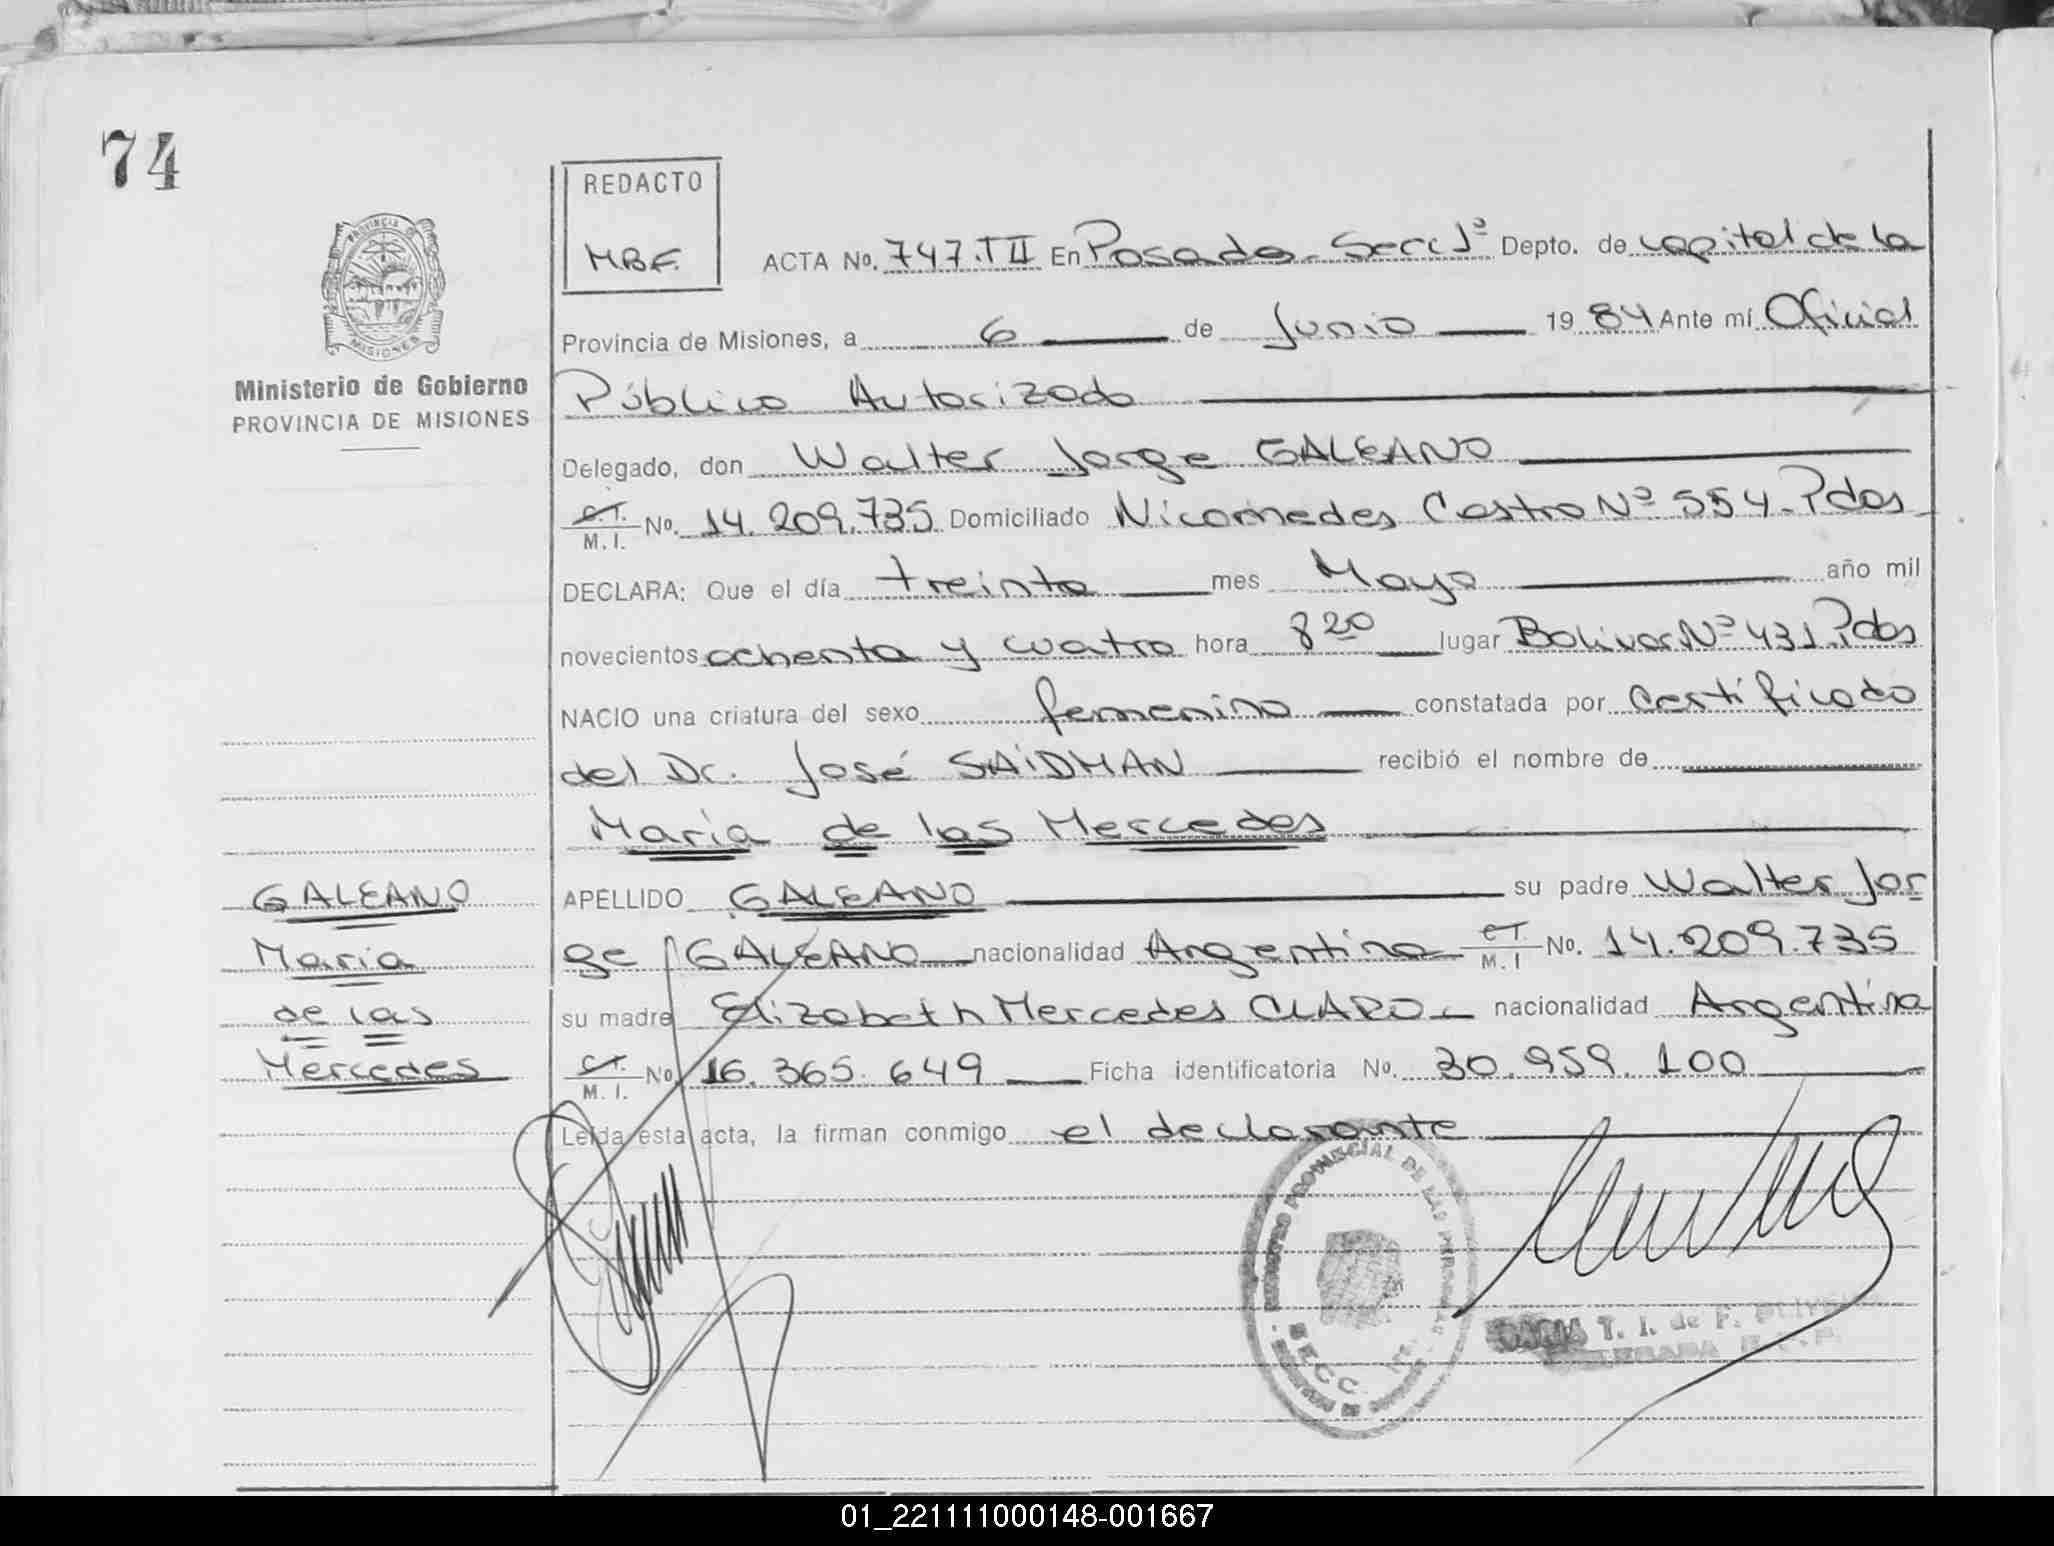 74
REDACTO
M.B.F.
PROVINCIA DE
MISIONES
Ministerio de Gobierno
PROVINCIA DE MISIONES
ACTA No. 747.TII En Posadas - Secc 1º Depto. de capital de la
Provincia de Misiones, a 6 de Junio 1984 Ante mí Oficial
Público Autorizado
Delegado, don Walter Jorge GALEANO
C.I. M.I. No. 14.209.735 Domiciliado Nicomedes Castro Nº 554 - Pdas
DECLARA: Que el día treinta mes Mayo año mil
novecientos ochenta y cuatro hora 8 20 lugar Bolivar Nº 431. Pdas
NACIO una criatura del sexo femenino constatada por Certificado
del Dr. José SAIDMAN recibió el nombre de
María de las Mercedes
APELLIDO GALEANO su padre Walter Jor
ge GALEANO nacionalidad Argentina C.I. M.I No. 14.209.735
su madre Elizabeth Mercedes CLARO - nacionalidad Argentina
C.I. M.I. No 16.365.649 Ficha identificatoria No. 30.959.100
Leída esta acta, la firman conmigo el declarante
GALEANO
María
de las
Mercedes
REGISTRO PROVINCIAL DE LAS PERSONAS
SECC. 1ra.
T. I. de F.
01_221111000148-001667